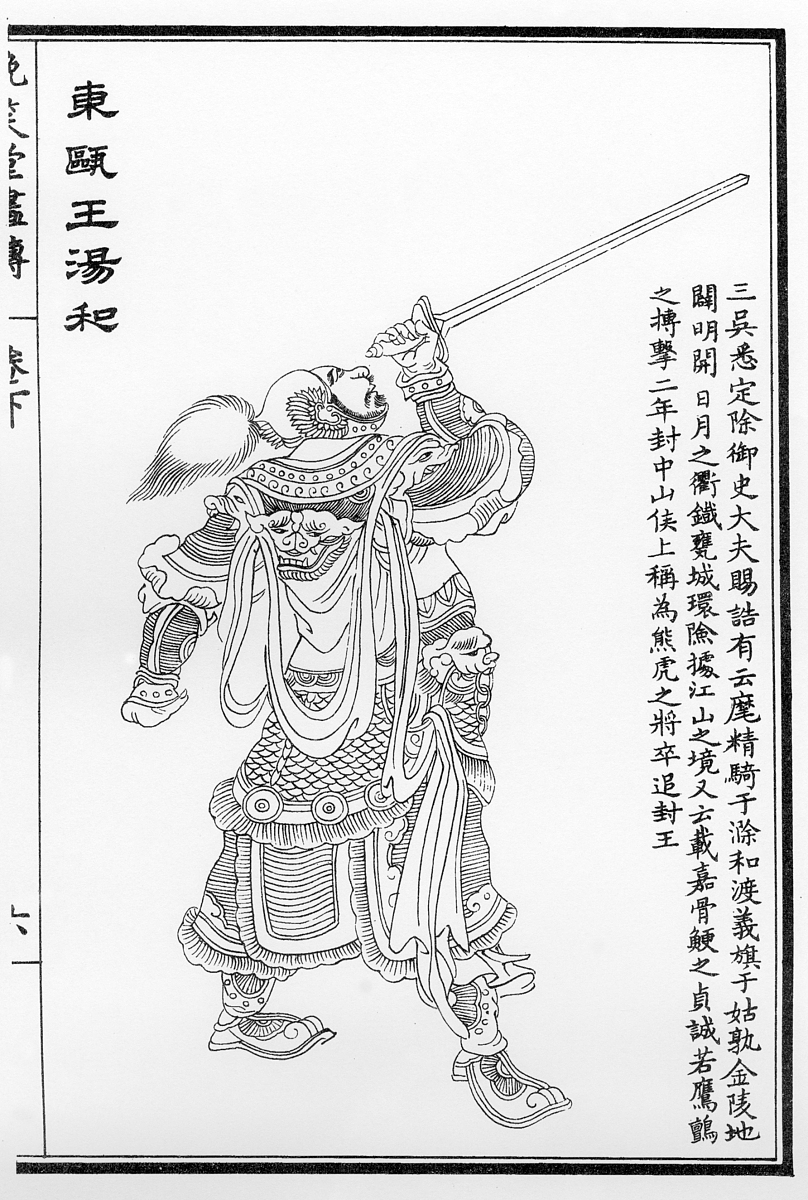 三吳悉定除御史大夫賜誥有云麾精騎于滁和渡義旗于姑孰金陵地
闢明開日月之衢鐵甕城環險據江山之境又云載嘉骨鯁之貞誠若鷹鸇
之搏擊二年封中山侯上稱為熊虎之將卒追封王
東甌王湯和
晚笑堂畫傳
卷下
六